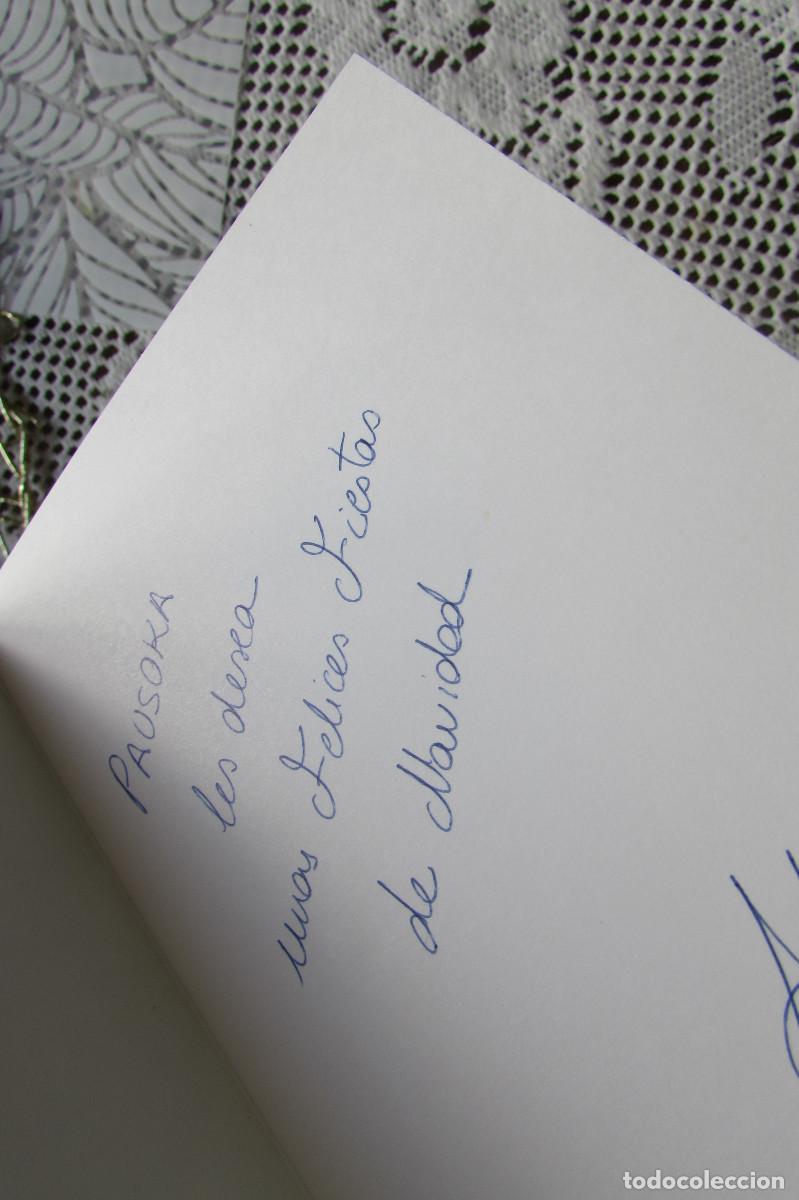 PAUSOKA
les desea
unas Felices Fiestas
de Navidad
todocoleccion